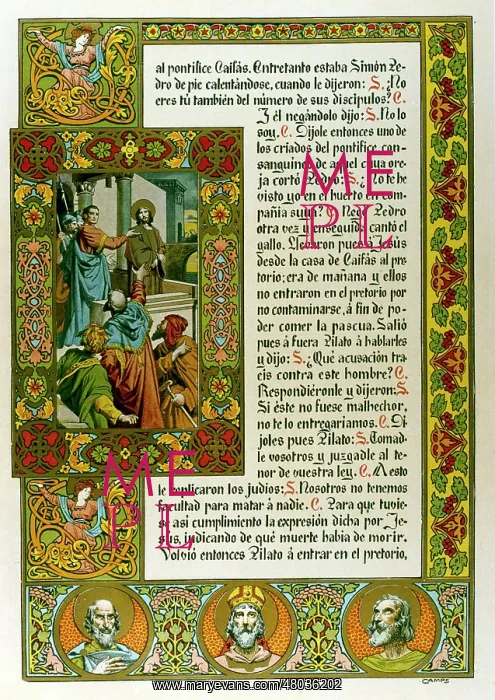 al pontífice Caifás. Entretanto estaba Simón Pe-
dro de pie calentándose, cuando le dijeron: S. ¿No
eres tú también del número de sus discípulos? C.
Y él negándolo dijo: S. No lo
soy. C. Díjole entonces uno de
los criados del pontífice con-
sanguíneo de aquel cuya ore-
ja cortó Pedro: S. ¿No te he
visto yo en el huerto en com-
pañía suya? C. Negó Pedro
otra vez y enseguida cantó el
gallo. Llevaron pues á Jesús
desde la casa de Caifás al pre
torio; era de mañana y ellos
no entraron en el pretorio por
no contaminarse, á fin de po-
der comer la pascua. Salió
pues á fuera Pilato á hablarles
y dijo: S. ¿Qué acusación tra-
eis contra este hombre? C.
Respondiéronle y dijeron: S.
Si éste no fuese malhechor,
no te lo entregaríamos. C. Dí
joles pues Pilato: S. Tomad-
le vosotros y juzgadle al te-
nor de vuestra ley. C. A esto
le suplicaron los judíos: S. Nosotros no tenemos
facultad para matar á nadie. C. Para que tuvie-
se así cumplimiento la expresión dicha por Je-
sús, indicando de qué muerte había de morir.
Volvió entonces Pilato á entrar en el pretorio,
ME
PL
ME
PL
CAMPS
www.maryevans.com/48036202